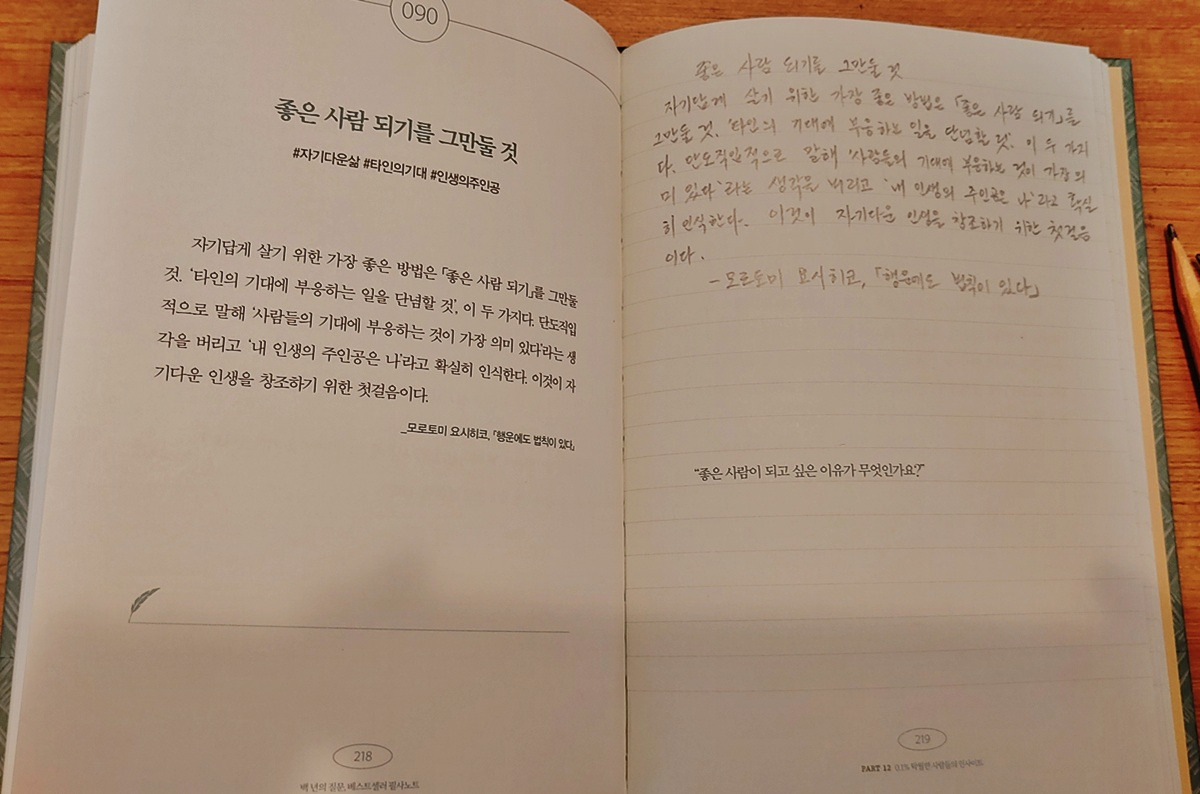 090
좋은 사람 되기를 그만둘 것
#자기다운삶 #타인의기대 #인생의주인공
자기답게 살기 위한 가장 좋은 방법은 「좋은 사람 되기」를 그만둘
것. ‘타인의 기대에 부응하는 일을 단념할 것’, 이 두 가지다. 단도직입
적으로 말해 ‘사람들의 기대에 부응하는 것이 가장 의미 있다’라는 생
각을 버리고 ‘내 인생의 주인공은 나’라고 확실히 인식한다. 이것이 자
기다운 인생을 창조하기 위한 첫걸음이다.
_모로토미 요시히코, 「행운에도 법칙이 있다」
218
백 년의 질문, 베스트셀러 필사노트
좋은 사람 되기를 그만둘 것
자기답게 살기 위한 가장 좋은 방법은 「좋은 사람 되기」를
그만둘 것. ‘타인의 기대에 부응하는 일을 단념할 것’. 이 두 가지
다. 단도직입적으로 말해 ‘사람들의 기대에 부응하는 것이 가장 의
미 있다’라는 생각을 버리고 ‘내 인생의 주인공은 나’라고 확실
히 인식한다. 이것이 자기다운 인생을 창조하기 위한 첫걸음
이다.
- 모로토미 요시히코, 「행운에도 법칙이 있다」
“좋은 사람이 되고 싶은 이유가 무엇인가요?”
219
PART 12 0.1% 탁월한 사람들의 인사이트